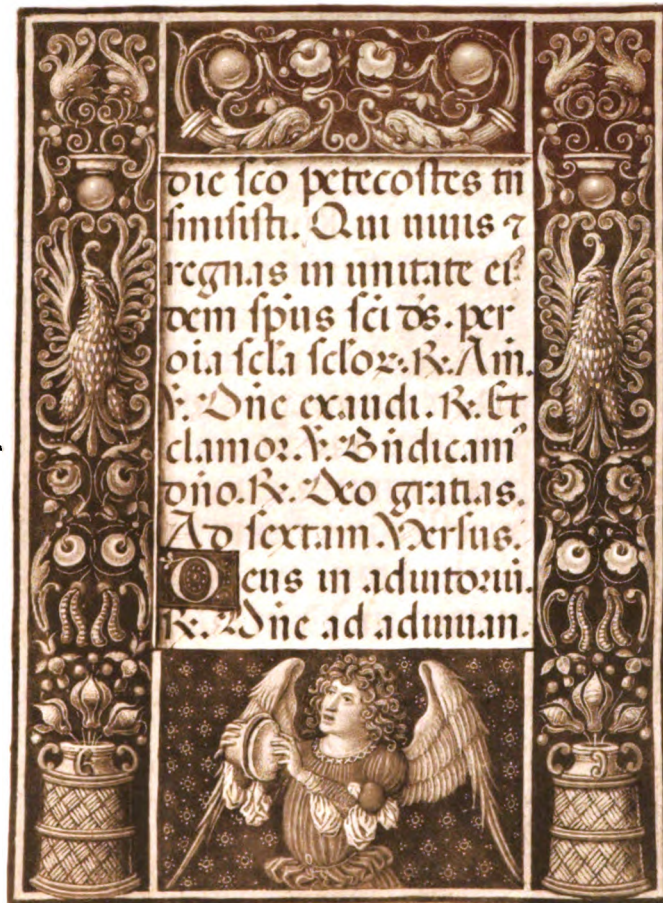 die sco petecostes tñ
smisisti. Qui uiuis ⁊
regnas in unitate eiʾ
dem spũs sci ds. per
oia scla sclorꝝ. ℟. Am̃.
℣. Dñe exaudi. ℟. Et
clamor ℣. Bñdicamʾ
dño. ℟. Deo gratias.
Ad sextam Versus.
Deus in adiutoriũ.
℟. Dñe ad adiuuan.